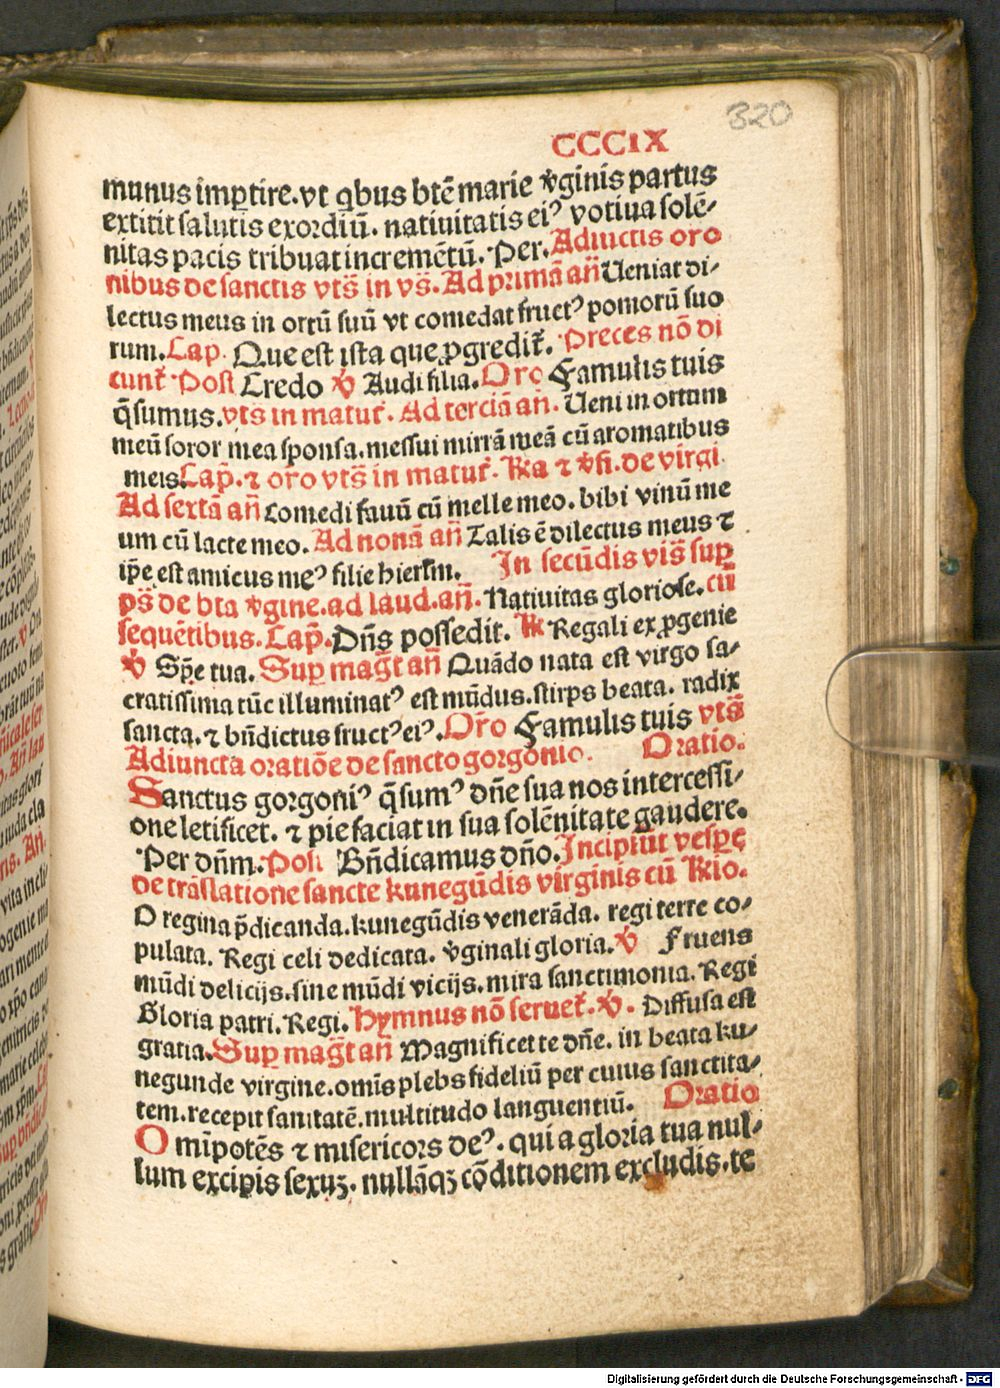 320
CCCIX
munus imꝑtire. vt qͥbus btē marie v̓ginis partus
extitit salutis exordiū. natiuitatis eiꝰ votiua solē-
nitas pacis tribuat incremētū. Per. Adiūctis oro
nibus de sanctis vts̄ in vs̄. Ad primā an̄ Ueniat di-
lectus meus in ortū suū vt comedat fructꝰ pomorū suo
rum. Cap. Que est ista que ꝓgredit̄. Preces nō di
cunt̄ Post Credo ℣ Audi filia. Oro Famulis tuis
q̄sumus. vts̄ in matut̄. Ad terciā an̄. Ueni in ortum
meū soror mea sponsa. messui mirrā meā cū aromatibus
meis. Cap̄. ⁊ oro vts̄ in matut̄. R̄ia ⁊ v̓si. de virgi.
Ad sextā an̄ Comedi fauū cū melle meo. bibi vinū me
um cū lacte meo. Ad nonā an̄ Talis ē dilectus meus ⁊
ip̄e est amicus meꝰ filie hierl̄m. In secūdis vis̄ suꝑ
ps̄ de bta v̓gine. ad laud. an̄. Natiuitas gloriose. cū
sequētibus. Cap̄. Dn̄s possedit. ℟ Regali ex ꝓgenie
℣ Sp̄e tua. Suꝑ maḡt an̄ Quādo nata est virgo sa-
cratissima tūc illuminatꝰ est mūdus. stirps beata. radix
sancta. ⁊ bn̄dictus fructꝰ eiꝰ. Or̄o Famulis tuis vts̄
Adiuncta oratiōe de sancto gorgonio. Oratio.
Sanctus gorgoniꝰ q̄sumꝰ dn̄e sua nos intercessi-
one letificet. ⁊ pie faciat in sua solēnitate gaudere.
Per dn̄m. Post Bn̄dicamus dn̄o. Incipiūt vesꝑe
de trāslatione sancte kunegūdis virginis cū R̄io.
O regina p̄dicanda. kunegūdis venerāda. regi terre co-
pulata. Regi celi dedicata. v̓ginali gloria. ℣ Fruens
mūdi delicijs. sine mūdi vicijs. mira sanctimonia. Regi
Gloria patri. Regi. Hymnus nō seruet̄. ℣. Diffusa est
gratia. Suꝑ maḡt an̄ Magnificet te dn̄e. in beata ku-
negunde virgine. omīs plebs fideliū per cuius sanctita-
tem. recepit sanitatē. multitudo languentiū. Oratio
O mīpotēs ⁊ misericors deꝰ. qui a gloria tua nul-
lum excipis sexuꝫ. nullāqꝫ cōditionem excludis. te
Digitalisierung gefördert durch die Deutsche Forschungsgemeinschaft - DFG